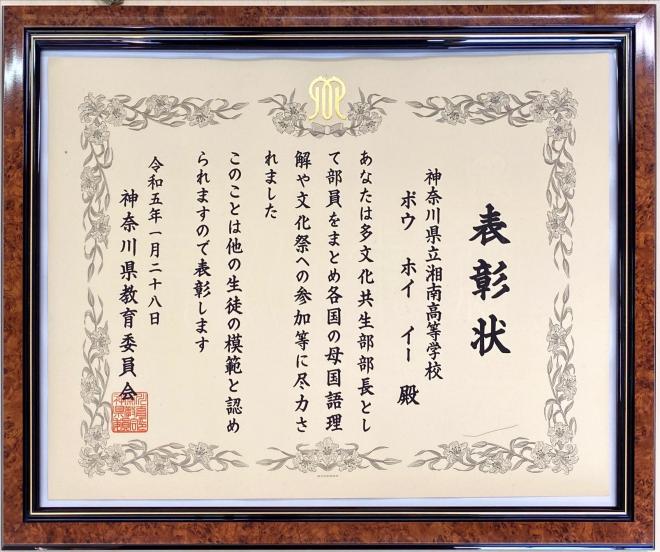 表彰状
神奈川県立湘南高等学校
ボウ ホイ イー 殿
あなたは多文化共生部部長とし
て部員をまとめ各国の母国語理
解や文化祭への参加等に尽力さ
れました
このことは他の生徒の模範と認め
られますので表彰します
令和五年一月二十八日
神奈川県教育委員会